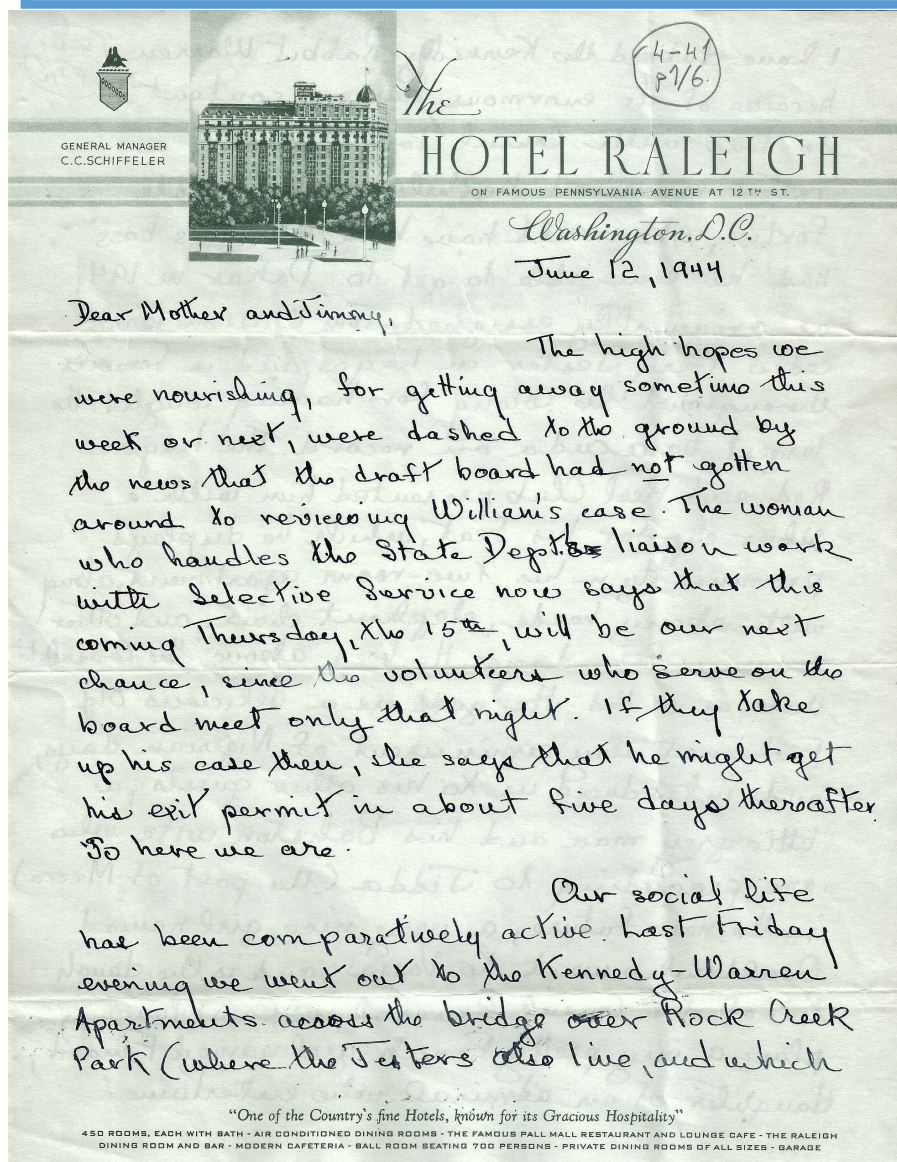 4-41
p1/6.
The
HOTEL RALEIGH
GENERAL MANAGER
C.C. SCHIFFELER
ON FAMOUS PENNSYLVANIA AVENUE AT 12TH ST.
Washington, D.C.
June 12, 1944
Dear Mother and Jimmy,
The high hopes we
were nourishing, for getting away sometime this
week or next, were dashed to the ground by
the news that the draft board had not gotten
around to reviewing William's case. The woman
who handles the State Dept.'s liaison work
with Selective Service now says that this
coming Thursday, the 15th, will be our next
chance, since the volunteers who serve on the
board meet only that night. If they take
up his case then, she says that he might get
his exit permit in about five days thereafter.
So here we are.
Our social life
has been comparatively active. Last Friday
evening we went out to the Kennedy-Warren
Apartments across the bridge over Rock Creek
Park (where the Testers also live, and which
"One of the Country's fine Hotels, known for its Gracious Hospitality"
450 ROOMS, EACH WITH BATH - AIR CONDITIONED DINING ROOMS - THE FAMOUS PALL MALL RESTAURANT AND LOUNGE CAFE - THE RALEIGH
DINING ROOM AND BAR - MODERN CAFETERIA - BALL ROOM SEATING 700 PERSONS - PRIVATE DINING ROOMS OF ALL SIZES - GARAGE